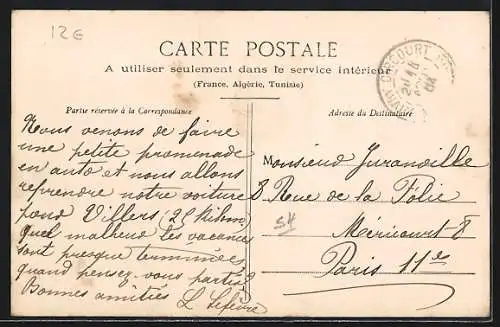 12€
CARTE POSTALE
A utiliser seulement dans le service intérieur
(France, Algérie, Tunisie)
Partie réservée à la Correspondance
Adresse du Destinataire
Nous venons de faire
une petite promenade
en auto et nous allons
reprendre notre voiture
pond Villers (25 kilom)
quel malheur les vacances
sont presque terminées
quand pensez-vous partir
Bonnes amitiés L. Lefèvre
Monsieur Juranville
8 Rue de la Folie
Méricourt 8
Paris 11es
54